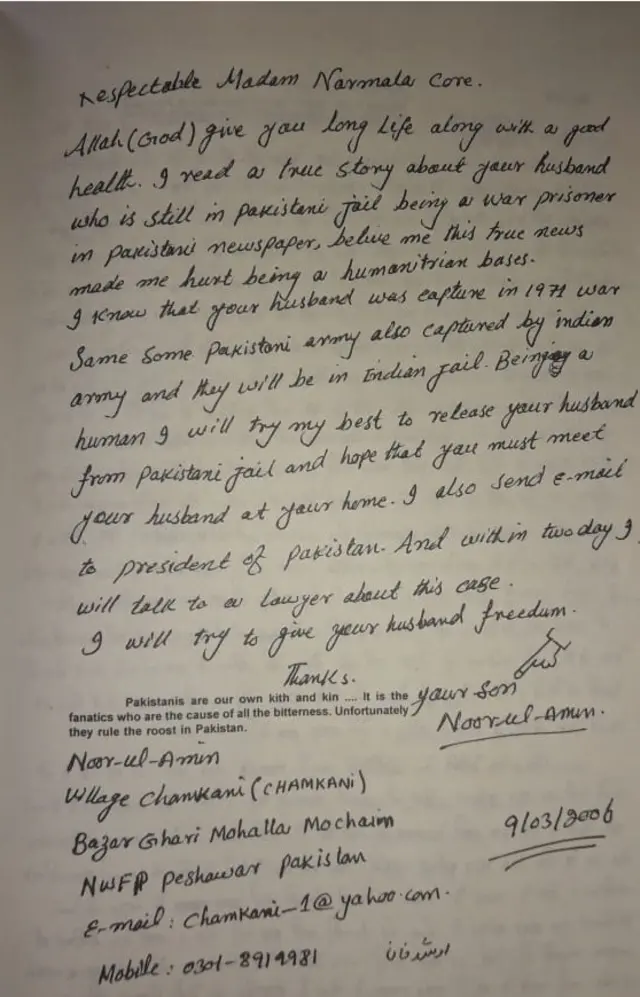 Respectable Madam Narmala Core.
Allah (God) give you long life along with a good
health. I read a true story about your husband
who is still in pakistani jail being a war prisoner
in pakistani newspaper, belive me this true news
made me hurt being a humanitrian bases.
I know that your husband was capture in 1971 war
Same Some pakistani army also captured by indian
army and they will be in Indian jail. Being a
human I will try my best to release your husband
from pakistani jail and hope that you must meet
your husband at your home. I also send e-mail
to president of pakistan. And with in two day I
will talk to a lawyer about this case.
I will try to give your husband freedum.
Thanks.
Pakistanis are our own kith and kin .... It is the
fanatics who are the cause of all the bitterness. Unfortunately
they rule the roost in Pakistan.
your son
Noor-ul-Amin.
Noor-ul-Amin
Village Chamkani (CHAMKANI)
Bazar Ghari Mohalla Mochaim
NWFP Peshawar pakistan
9/03/2006
E-mail : Chamkani-1@yahoo.com.
Mobile : 0301-8919981
ارشد خان